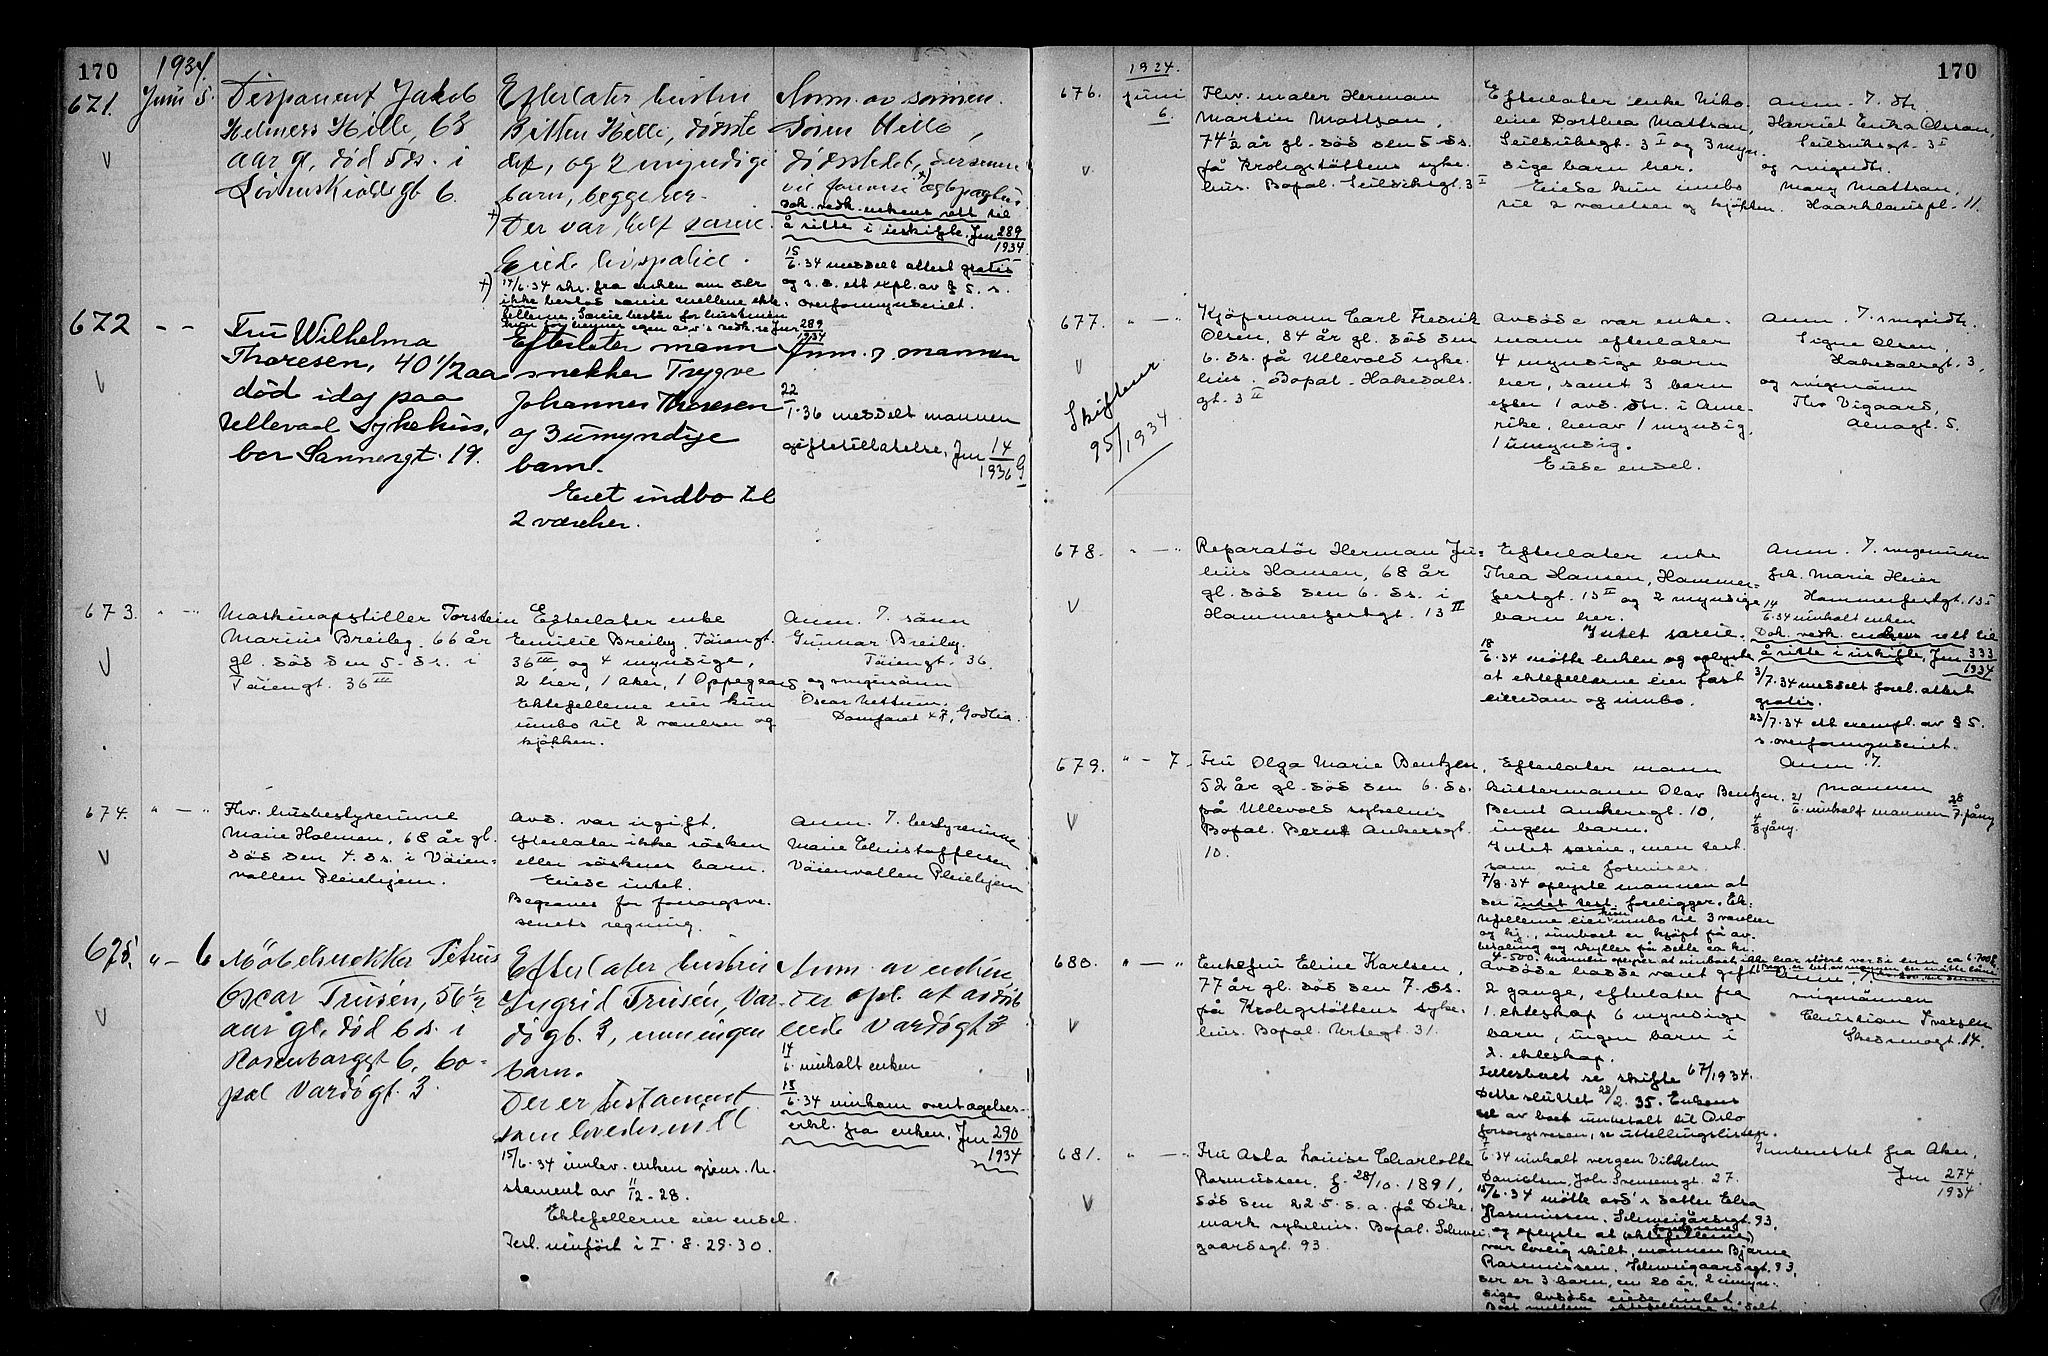 170
1934.
671.
Juni 5.
Disponent Jakob
Helmers Hille, 63
aar gl, død 5ds. i
Løvenskioldsgt. 6.
Efterlater hustru
Betten Hille, dødste
det, og 2 myndige
barn, begge her.
+) Der var helt særeie.
Eiede livspolice.
+) 14/6.34 skr. fra enken om der
ikke bestod særeie mellem ekte-
fellerne. Særeie består for hustruen
kun for hennes egen arv's vedk. se Jnr 289/1934
Anm. av sønnen
Søren Hille,
dødsstedet,
Dok. vedk. enkens rett til
å sitte i uskifte. Jnr 289/1934
15/6.34 meddelt attest gratis
og s. d. ett expl. av § 5. s.
overformynderiet.
672 — —
Fru Wilhelma
Thoresen, 40 1/2 aar
død idag paa
Ullevaal Sykehus,
bor Sannergt. 19.
Efterlater mann
snekker Trygve
Johannes Thoresen
og 3 umyndige
barn.
Eiet indbo til
2 værelser.
Anm. 7. mannen
22/1.36 meddelt mannen
giftetillatelse. Jnr 14/1936 G
673. " — "
Maskinopstiller Torstein
Marius Breiby, 66 år
gl. død den 5. ds. i
Tøiengt. 36 III
Efterlater enke
Emilie Breiby, Tøiengt.
36 III, og 4 myndige,
2 her, 1 Aker, 1 Oppegaard
Ektefellerne eier kun
innbo til 2 værelser og
kjøkken.
Anm. 7. sønn
Gunnar Breiby,
Tøiengt. 36.
og svigersønn
Oscar Nettum,
Domfaret 47, Godlia.
674. " — "
Fhv. husbestyrerinne
Marie Holmen, 68 år gl.
død den 4. ds. i Vøien-
vollen Pleiehjem.
Avd. var ugift,
efterlater ikke søsken
eller søskens barn.
Eiede intet.
Begraves for forsorgsve-
senets regning.
Anm. 7. bestyrerinne
Marie Christoffersen
Vøienvollen Pleiehjem
675. " — 6
Møbelsnekker Petrus
Oscar Trusén, 56 1/2
aar gl, død 6ds. i
Rosenborggt 6, bo-
pæl Vardøgt. 3.
Efterlater hustru
Ingrid Trusén, Var-
døgt. 3, men ingen
barn.
Der er testament
15/6.34 innlev. enken gjens. te-
stament av 11/12-28.
Ektefellerne eier endel.
Test. innført i I. 8. 29. 30.
Anm. av enken
der opl. at avdøde
eiede Vardøgt 3
14/6. innkalt enken
18/6.34 innkom overtagelses-
erkl. fra enken. Jnr 290/1934
170
1934.
676. Juni 6.
Fhv. maler Herman
Martin Mattson,
74 1/2 år gl. død den 5. ds.
på Krohgstøttens syke-
hus. Bopæl. Seilduksgt. 3 I
Efterlater enke Niko-
line Dorthea Mattson,
Seilduksgt. 3 I og 3 myn-
dige barn her.
Eiede kun innbo
til 2 værelser og kjøkken.
Anm. 7. dtr.
Harriet Erika Olsson,
Seilduksgt. 3 I
og svigerdtr.
Mary Mattson,
Haarklouspl. 11.
677. " — "
Skiftenr
95/1934
Kjøpmann Carl Fredrik
Olsen, 84 år gl. død den
6. ds. på Ullevåls syke-
hus. Bopæl - Hakedals-
gt. 3 II
Avdøde var enke-
mann efterlater
4 myndige barn
her, samt 3 barn
efter 1 avd. dtr. i Ame-
rike, herav 1 myndig,
1 umyndig.
Eiede endel.
Anm. 7. svigerdtr.
Signe Olsen,
Hakedalsgt. 3,
og svigersønn
Thv Vigaard,
Alnagt. 5.
678. " — "
Reparatør Herman Ju-
lius Hansen, 68 år
gl. død den 6. ds. i
Hammerfestgt. 13 II
Efterlater enke
Thea Hansen, Hammer-
festgt. 13 II og 2 myndige
barn her.
Intet særeie.
18/6.34 møtte enken og oplyste
at ektefellerne eier fast
eiendom og innbo.
Anm. 7. svigerinnen
frk. Marie Heier
Hammerfestgt. 13 I
14/6.34 innkalt enken
Dok. vedk. enkens rett til
å sitte i uskifte. Jnr 333/1934
3/7.34 meddelt forel. attest
gratis.
23/7.34 ett exempl. av § 5.
s. overformynderiet.
679. " — 7.
Fru Olga Marie Bentzen,
52 år gl. død den 6. ds.
på Ullevåls sykehus
Bopæl. Bernt Ankersgt.
10.
Efterlater mann
kuttermann Olav Bentzen,
Bernt Ankersgt. 10,
ingen barn.
Intet særeie, men test.
som vil forevises.
7/8.34 oplyste mannen at
der intet test. foreligger. Ek-
tefellerne eier kun innbo til 3 værelser
og kj., innboet er kjøpt på av-
betaling og skylles på dette ca kr.
4-500.
Anm. 7.
mannen
21/6. innkalt mannen 28/7 påny
4/8 påny.
680. " — "
Enkefru Eline Karlsen,
77 år gl. død den 7. ds.
på Krohgstøttens syke-
hus. Bopæl. Urtegt. 31.
Avdøde hadde vært gift
2 gange, efterlater fra
1. ekteskap 6 myndige
barn, ingen barn i
2. ekteskap.
Fellesboet se skifte 67/1934.
Dette sluttet 28/2.35. Enkens
del av boet innbetalt til Oslo
forsorgsvesen, se utlodningslisten.
Anm. 7.
svigersønnen
Christian Iversen
Skedsmogt. 14.
681. " — "
Fru Asta Louise Charlotte
Rasmussen, f. 28/10.1891,
død den 22.5. d. a. på Dike-
mark sykehus. Bopæl. Schwei-
gaardsgt. 93.
7/6.34 innkalt vergen Vilhelm
Danielsen, Joh. Svensensgt. 27.
15/6.34 møtte avd's datter Elsa
Rasmussen, Schweigårdsgt. 93,
og oplyste at ektefellerne
var lovlig skilt, mannen Bjarne
Rasmussen, Schweigaardsgt. 93,
der er 3 barn, en 20 år, 2 umyn-
dige. Avdøde eiede intet.
Boet mellem ektefellerne er delt.
Innberettet fra Aker.
Jnr 274/1934